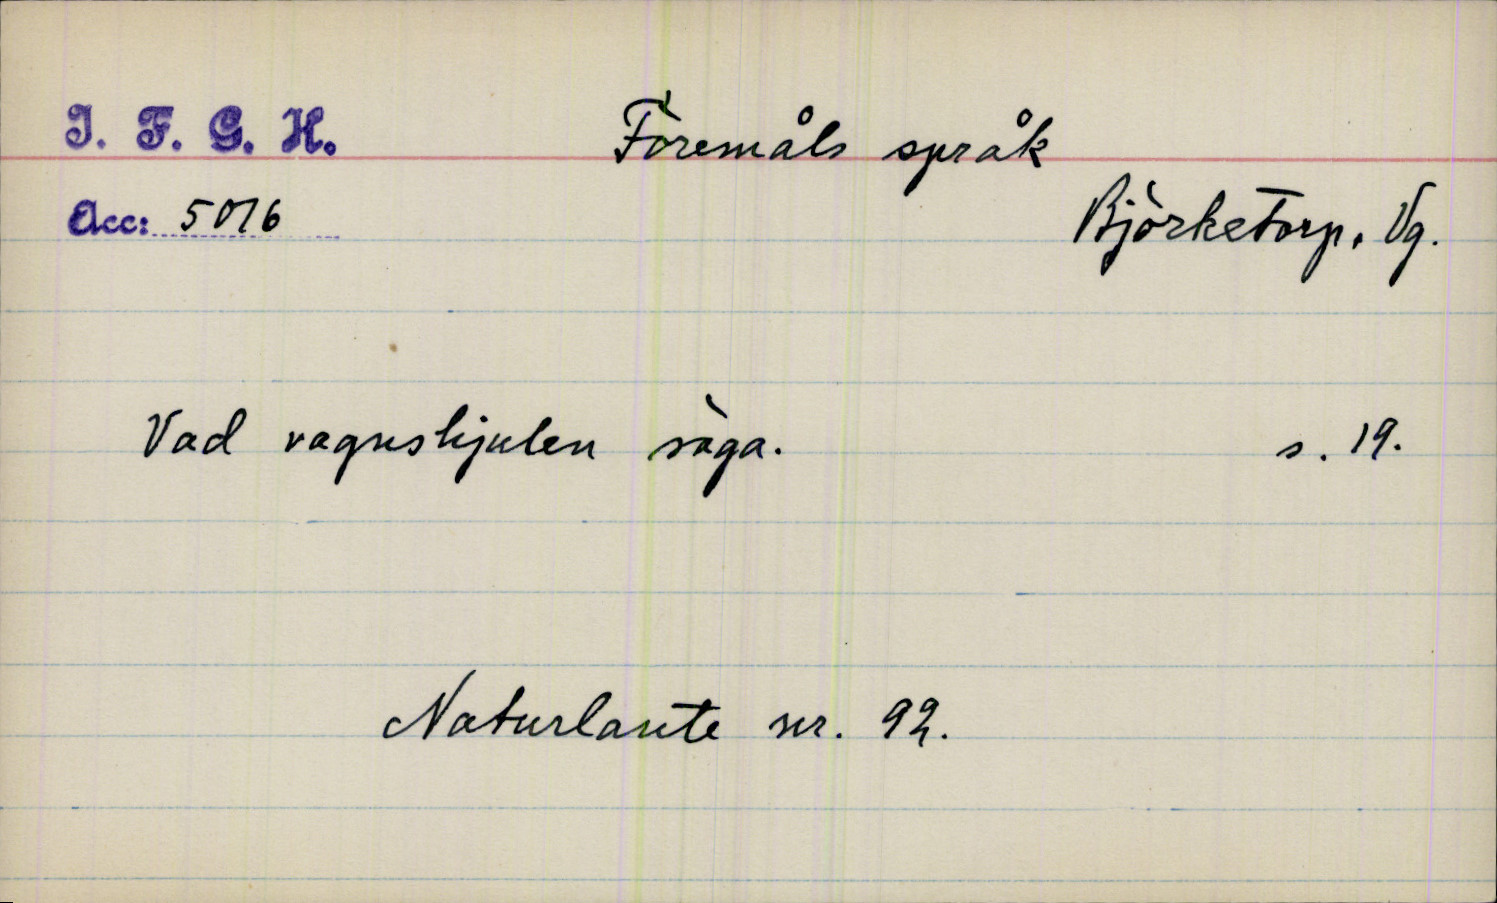 I. F. G. H.
Föremåls språk
Acc: 5076
Björketorp, Vg.
Vad vagnshjulen säga. s. 19.
Naturlaute nr. 92.